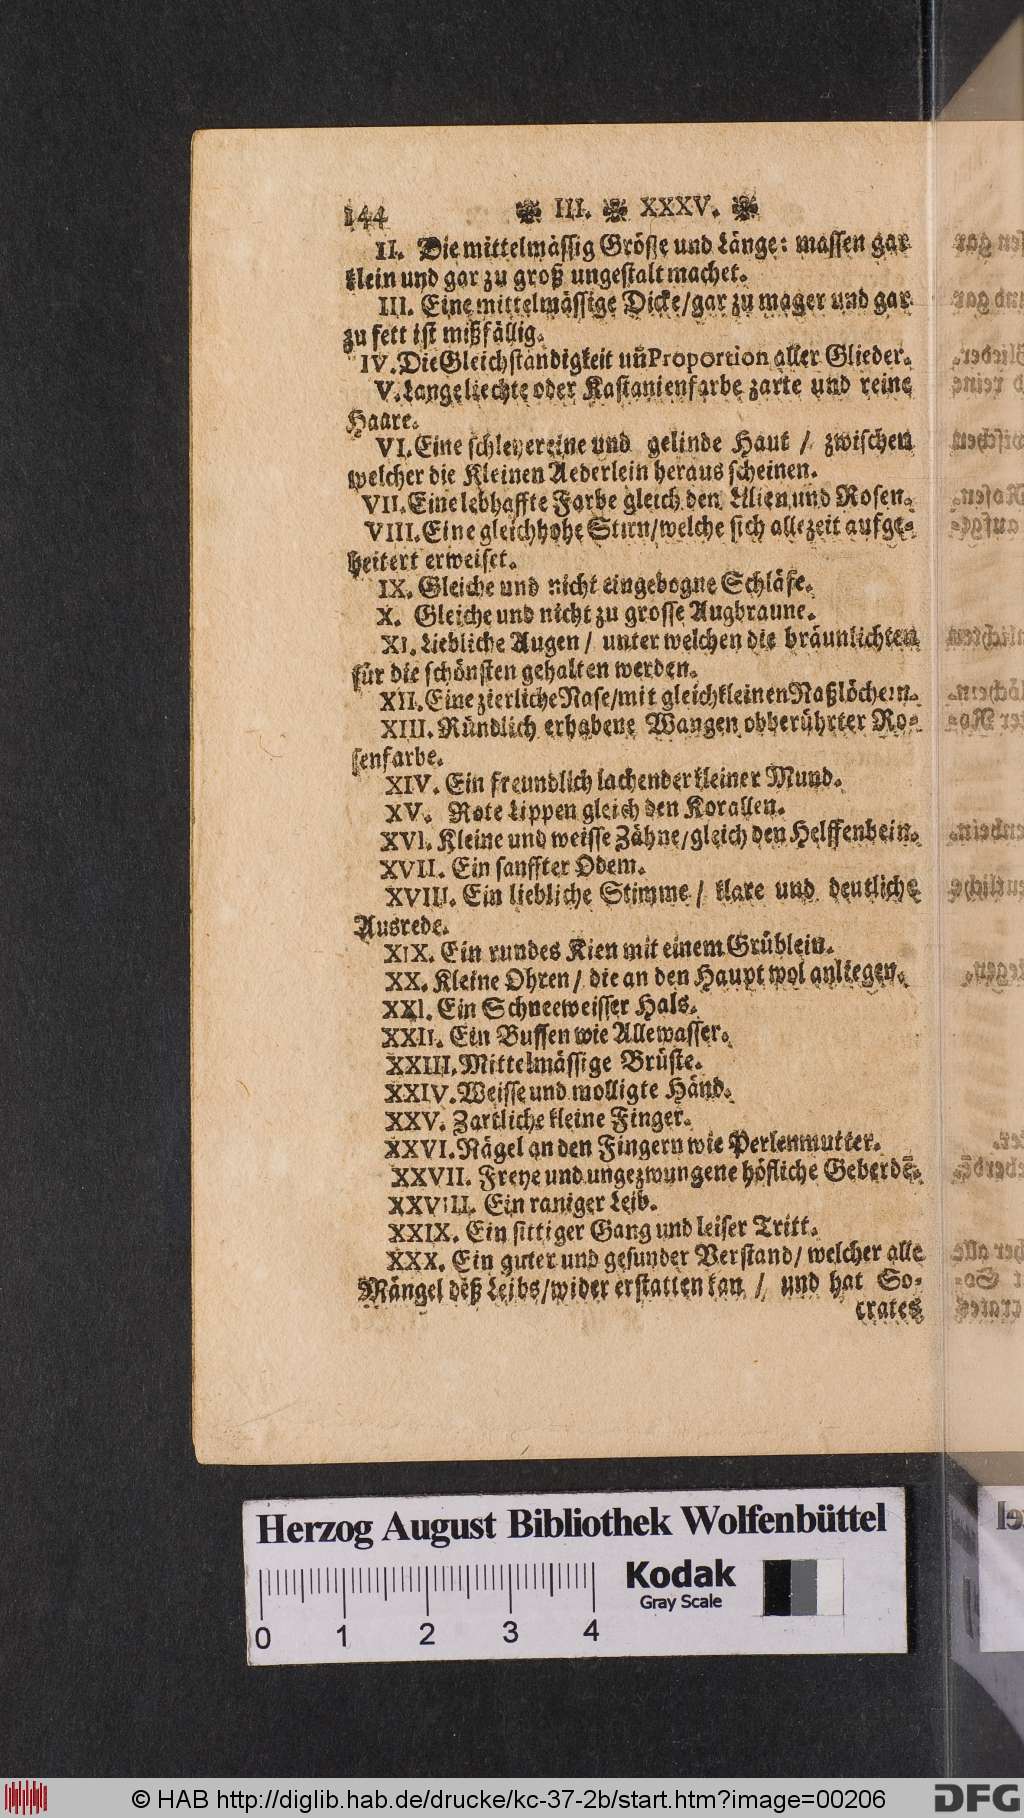 144 III. XXXV.
II. Die mittelmässig Grösse und Länge: massen gar
klein und gar zu groß ungestalt machet.
III. Eine mittelmässige Dicke/gar zu mager und gar
zu fett ist mißfällig.
IV. Die Gleichständigkeit uñ Proportion aller Glieder.
V. Lange liechte oder Kastanienfarbe zarte und reine
Haare.
VI. Eine schleyereine und gelinde Haut / zwischen
welcher die Kleinen Aederlein heraus scheinen.
VII. Eine lebhaffte Farbe gleich den Lilien und Rosen.
VIII. Eine gleichhohe Stirn/welche sich allezeit aufge-
heitert erweiset.
IX. Gleiche und nicht eingebogne Schläfe.
X. Gleiche und nicht zu grosse Augbraune.
XI. Liebliche Augen / unter welchen die bräunlichten
für die schönsten gehalten werden.
XII. Eine zierliche Nase/mit gleichkleinen Naßlöchern.
XIII. Ründlich erhabene Wangen obberührter Ro-
senfarbe.
XIV. Ein freundlich lachender kleiner Mund.
XV. Rote Lippen gleich den Korallen.
XVI. Kleine und weisse Zähne/gleich den Helffenbein.
XVII. Ein sanffter Odem.
XVIII. Ein liebliche Stimme / klare und deutliche
Ausrede.
XIX. Ein rundes Kien mit einem Grüblein.
XX. Kleine Ohren / die an den Haupt wol anliegen.
XXI. Ein Schneeweisser Hals.
XXII. Ein Bussen wie Allewasser.
XXIII. Mittelmässige Brüste.
XXIV. Weisse und molligte Händ.
XXV. Zartliche kleine Finger.
XXVI. Nägel an den Fingern wie Perlenmutter.
XXVII. Freye und ungezwungene höfliche Geberdē.
XXVIII. Ein raniger Leib.
XXIX. Ein sittiger Gang und leiser Tritt.
XXX. Ein guter und gesunder Verstand/ welcher alle
Mängel deß Leibs/wider erstatten kan / und hat So-
crates
Herzog August Bibliothek Wolfenbüttel
Kodak
Gray Scale
0 1 2 3 4
© HAB http://diglib.hab.de/drucke/kc-37-2b/start.htm?image=00206
DFG